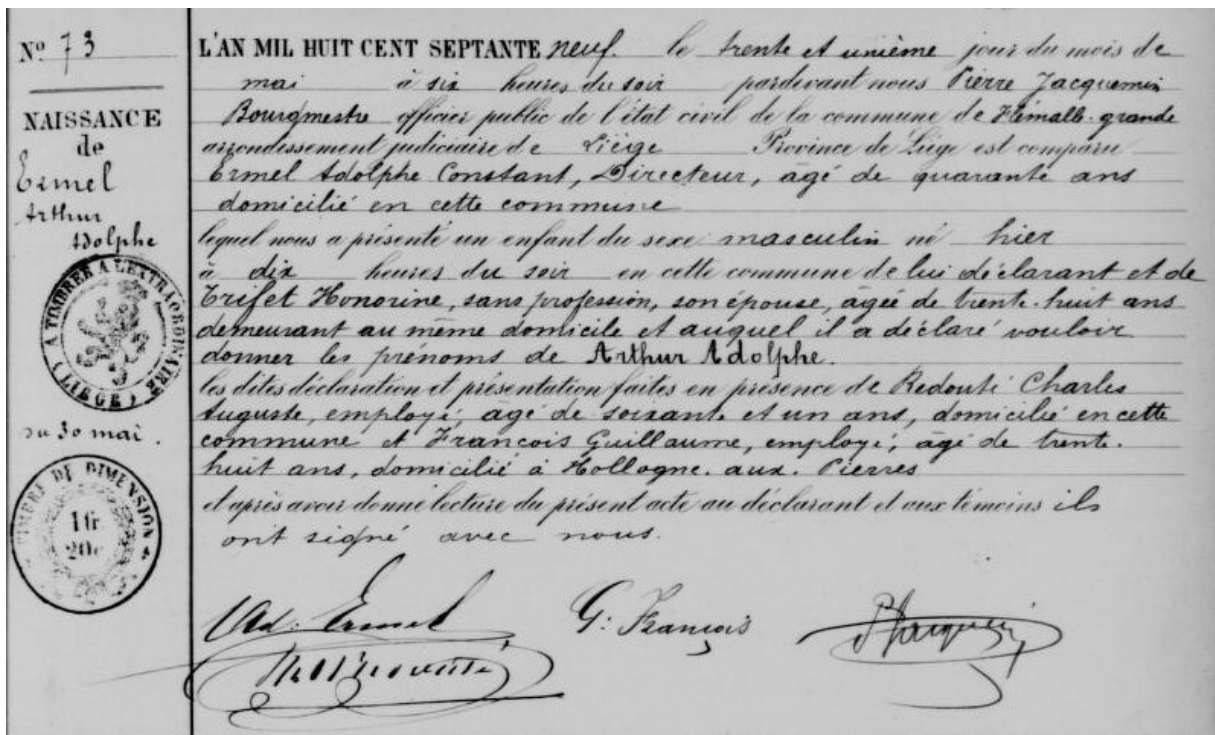 Nº 73
NAISSANCE
de
Ermel
Arthur
Adolphe
A TIMBRER A L'EXTRAORDINAIRE (LIEGE)
du 30 mai.
TIMBRE DE DIMENSION
1 fr
20c
L'AN MIL HUIT CENT SEPTANTE neuf. le trente et unième jour du mois de
mai à six heures du soir pardevant nous Pierre Jacquemin
Bourgmestre officier public de l'état civil de la commune de Flémalle-grande
arrondissement judiciaire de Liège Province de Liège est comparu
Ermel Adolphe Constant, Directeur, âgé de quarante ans
domicilié en cette commune
lequel nous a présenté un enfant du sexe masculin né hier
à dix heures du soir en cette commune de lui déclarant et de
Trifet Honorine, sans profession, son épouse, âgée de trente-huit ans
demeurant au même domicile et auquel il a déclaré vouloir
donner les prénoms de Arthur Adolphe.
les dites déclaration et présentation faites en présence de Redouté Charles
Auguste, employé, âgé de soixante et un ans, domicilié en cette
commune et François Guillaume, employé, âgé de trente-
huit ans, domicilié à Hollogne-aux-Pierres
et après avoir donné lecture du présent acte au déclarant et aux témoins ils
ont signé avec nous.
Ad: Ermel G: François PJacquemin